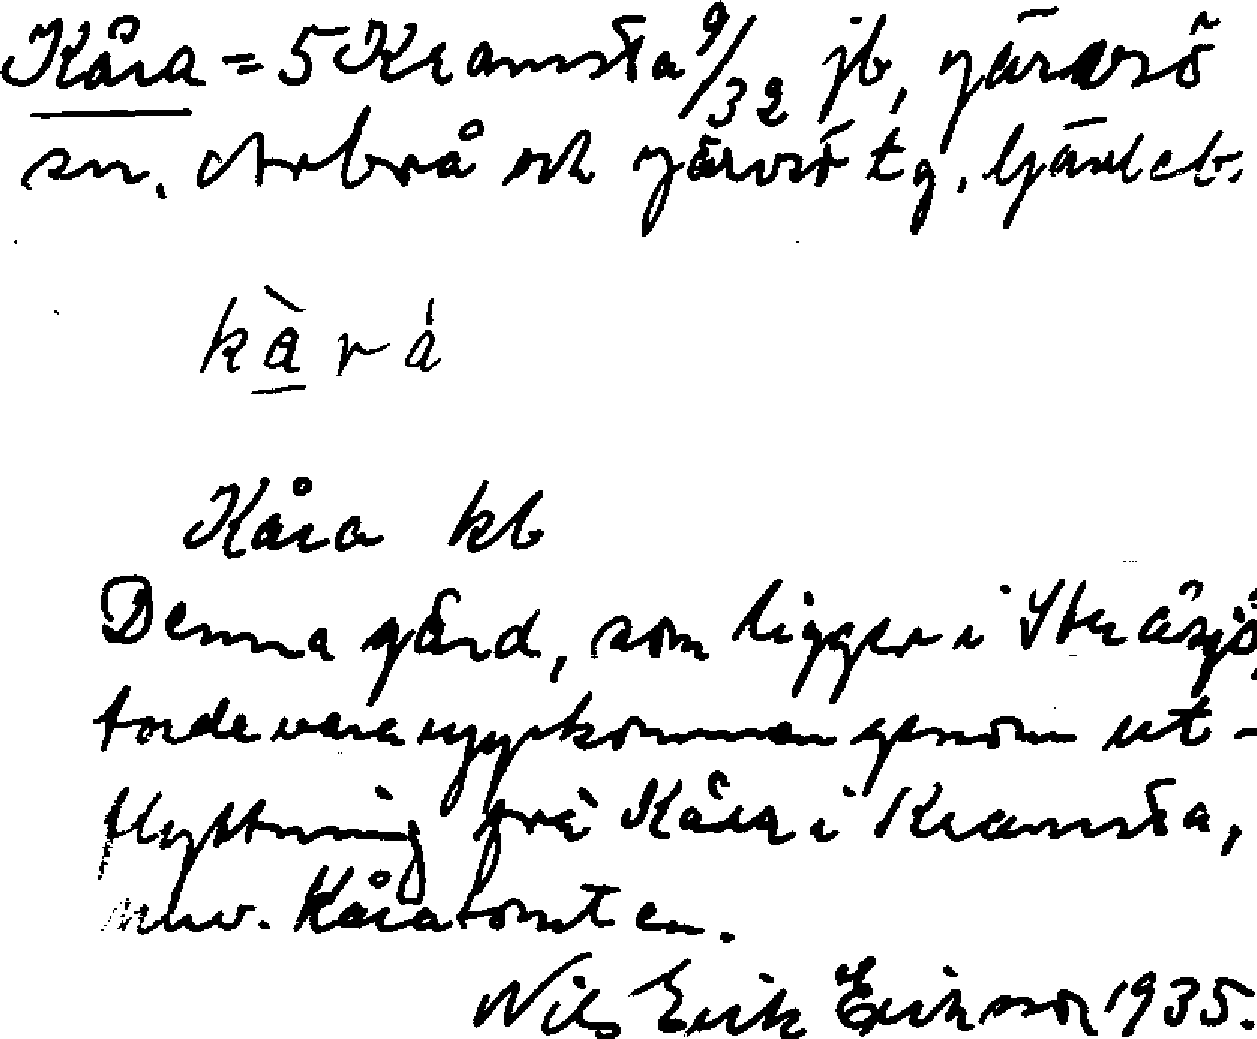 Kåra = 5 Kramsta 9/32 jb, Järvsö
sn. Arbrå och Järvsö tg, Gävleb.
kàrá
Kåra kb
Denna gård, som ligger i Stråsjö,
torde vara uppkommen genom ut-
flyttning frå Kåra i Kramsta,
nuv. Kåratomten.
Nils Erik Eriksson 1935.